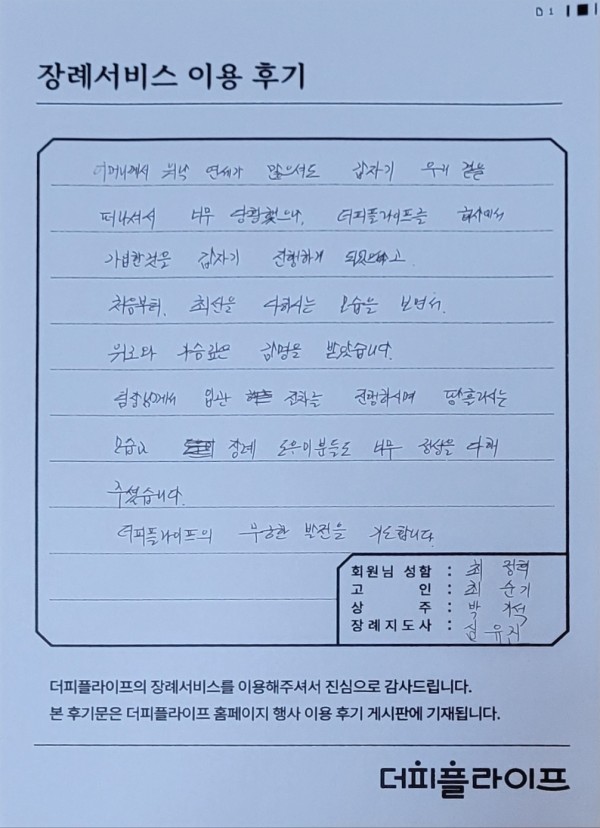 D 1
장례서비스 이용 후기
어머니께서 워낙 연세가 많으셔도 갑자기 우리 곁을
떠나셔서 너무 당황했으나, 더피플라이프를 회사에서
가입한것을 갑자기 진행하게 되었고
처음부터, 최선을 다하시는 모습을 보면서,
위로와 감명을 받았습니다.
팀장님께서 입관 절차를 진행하시며 땀흘리시는
모습과 장례 도우미분들도 너무 정성을 다해
주셨습니다.
더피플라이프의 무궁한 발전을 기도합니다.
회원님 성함 : 최 정혁
고 인 : 최 순기
상 주 : 박 석
장례지도사 : 심 유진
더피플라이프의 장례서비스를 이용해주셔서 진심으로 감사드립니다.
본 후기문은 더피플라이프 홈페이지 행사 이용 후기 게시판에 기재됩니다.
더피플라이프